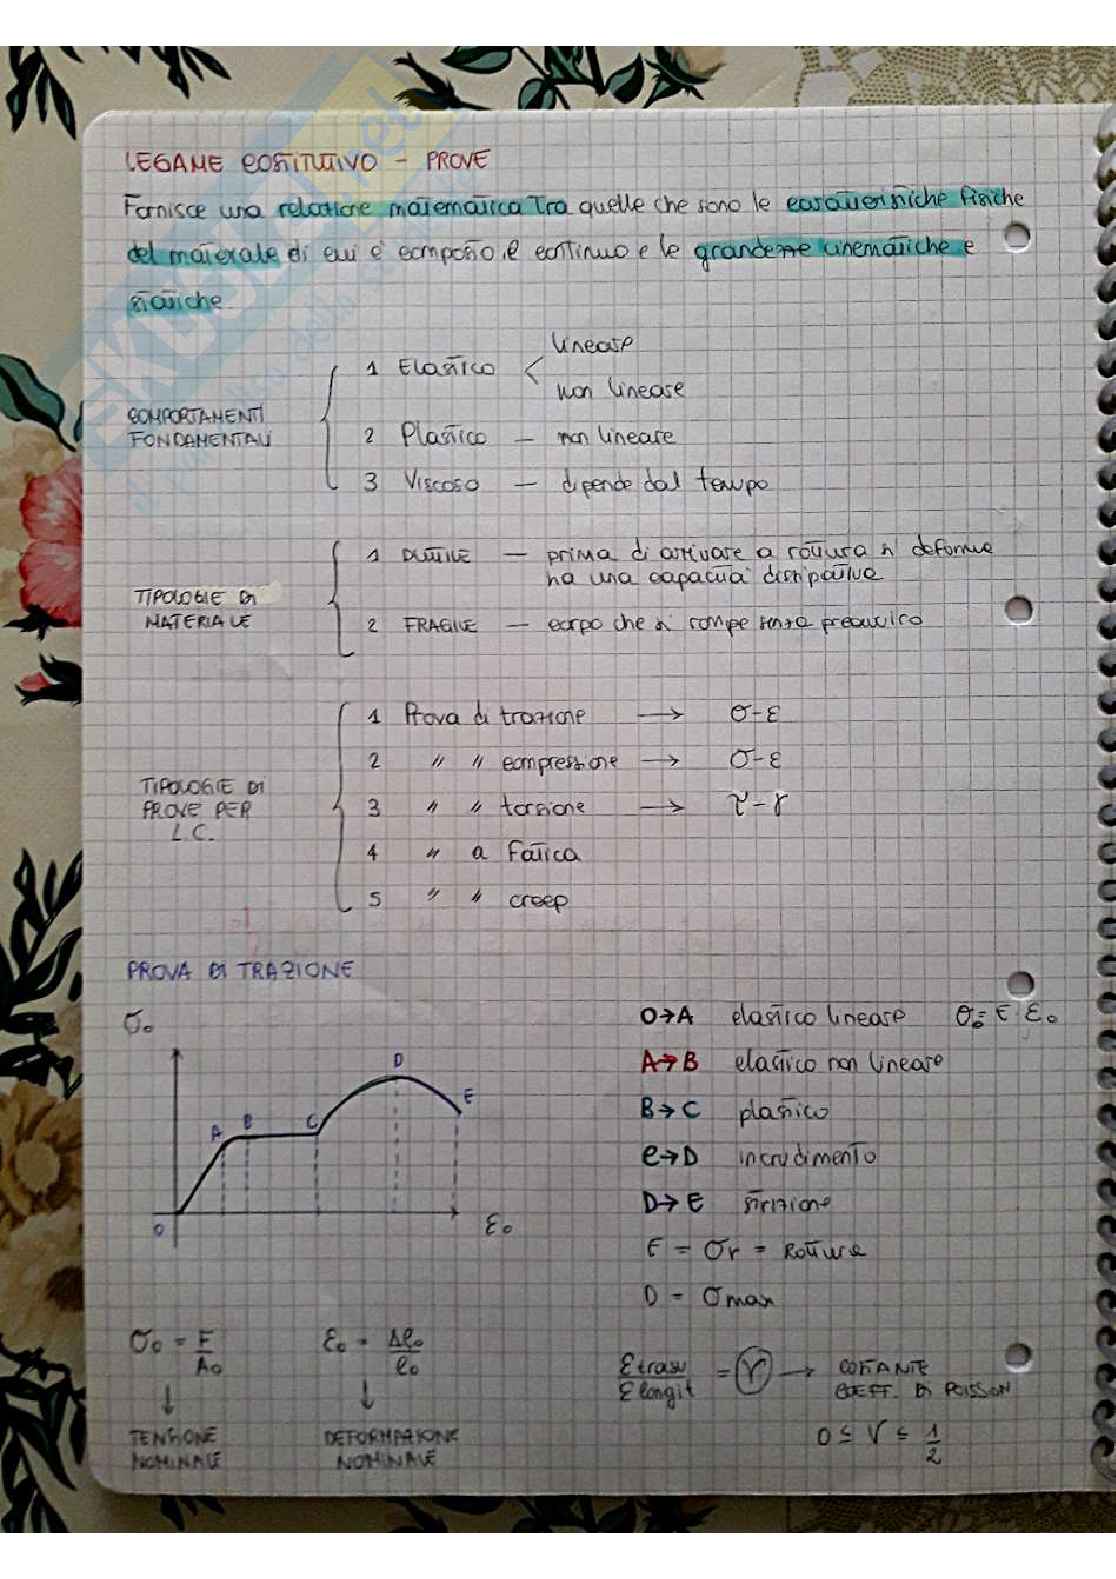 LEGAME COSTITUTIVO - PROVE
Fornisce una relazione matematica tra quelle che sono le caratteristiche fisiche
del materiale di cui è composto il continuo e le grandezze cinematiche e
statiche
COMPORTAMENTI
FONDAMENTALI
1 Elastico < lineare
non lineare
2 Plastico - non lineare
3 Viscoso - dipende dal tempo
TIPOLOGIE DI
MATERIALE
1 DUTTILE - prima di arrivare a rottura si deforma
ha una capacità dissipativa
2 FRAGILE - corpo che si rompe senza preavviso
TIPOLOGIE DI
PROVE PER
L.C.
1 Prova di trazione → σ-ε
2 " " compressione → σ-ε
3 " " torsione → τ-γ
4 " a fatica
5 " " creep
PROVA DI TRAZIONE
σo
A B C D E
O
εo
O→A elastico lineare σo = E εo
A→B elastico non lineare
B→C plastico
C→D incrudimento
D→E strizione
E = σr = Rottura
D = σmax
σo = F/Ao
↓
TENSIONE
NOMINALE
εo = Δlo/lo
↓
DEFORMAZIONE
NOMINALE
εtrasv/εlongit = ν → COSTANTE
COEFF. DI POISSON
0 ≤ ν ≤ 1/2